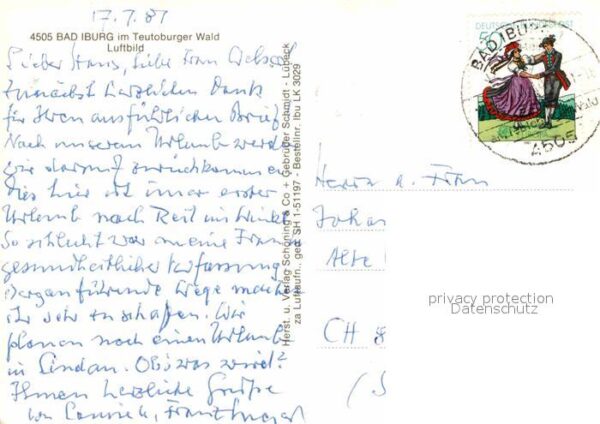 17.7.81
4505 BAD IBURG im Teutoburger Wald
Luftbild
Lieber Hans, liebe Frau
zunächst herzlichen Dank
für Ihren ausführlichen Brief
Nach unserem Urlaub werde
gar darauf zurückkommen
Dies hier ist unser erster
Urlaub nach Reit im Winkl
So schlecht war meine Frau
gesundheitlicher Verfassung
Bergan führende Wege machen
ihr sehr zu schaffen. Wir
planen noch einen Urlaub
in Lindau. Ob's was wird?
Ihnen herzliche Grüße
von
Herst. u. Verlag Schöning & Co + Gebrüder Schmidt - Lübeck
za Luftaufn., gen. SH 1-51197 - Bestellnr. Ibu LK 3029
DEUTSCHE BUNDESPOST
BAD IBURG
4505
Herrn u. Frau
Alte
CH 8
privacy protection
Datenschutz